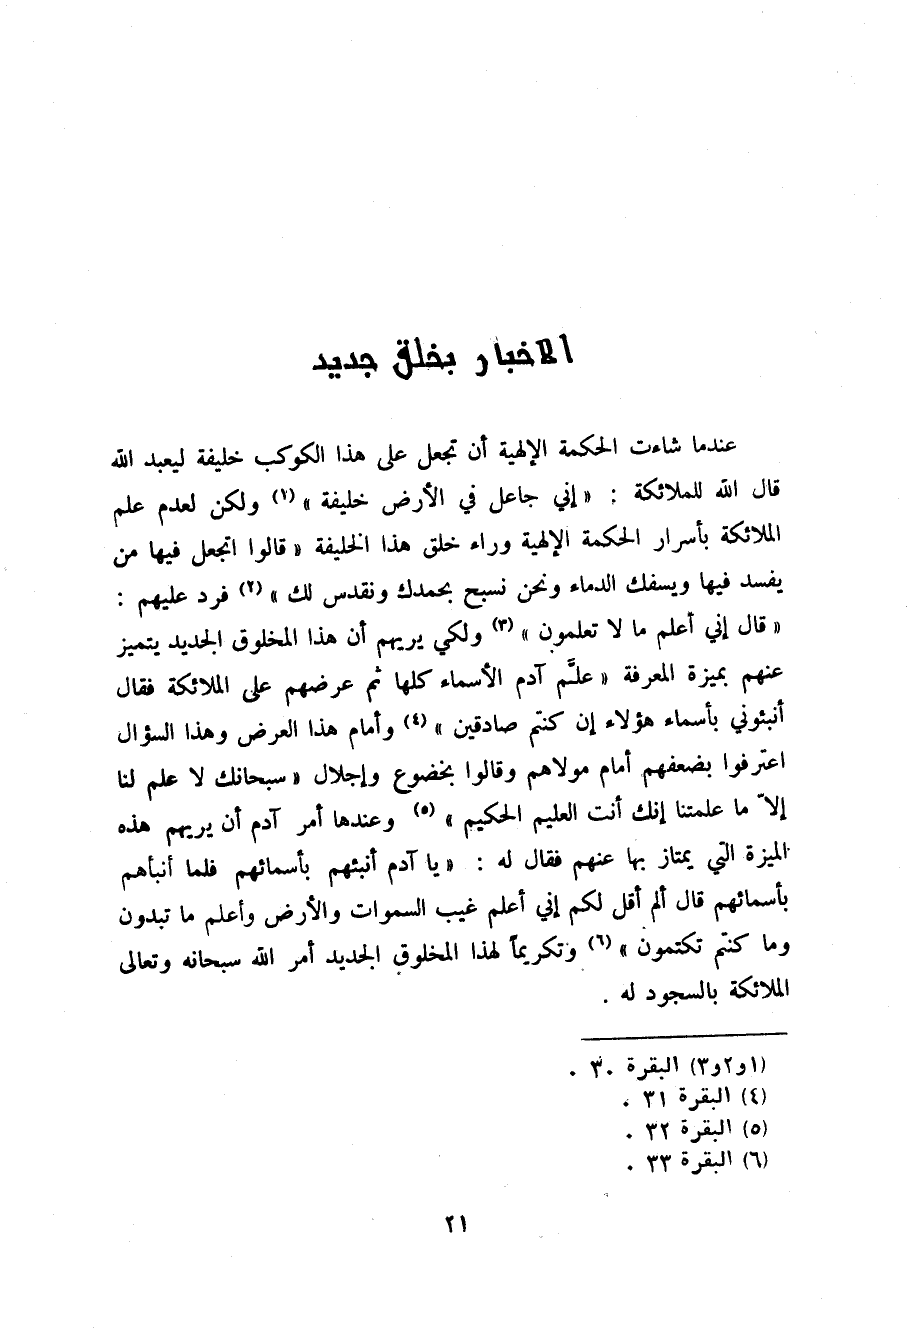 الاخبار بخلق جديد
عندما شاءت الحكمة الإلهية أن تجعل على هذا الكوكب خليفة ليعبد الله
قال الله للملائكة : « إني جاعل في الأرض خليفة » (١) ولكن لعدم علم
الملائكة بأسرار الحكمة الإلهية وراء خلق هذا الخليفة « قالوا اتجعل فيها من
يفسد فيها ويسفك الدماء ونحن نسبح بحمدك ونقدس لك » (٢) فرد عليهم :
« قال إني أعلم ما لا تعلمون » (٣) ولكي يريهم أن هذا المخلوق الجديد يتميز
عنهم بميزة المعرفة « علَّم آدم الأسماء كلها ثم عرضهم على الملائكة فقال
أنبئوني بأسماء هؤلاء إن كنتم صادقين » (٤) وأمام هذا العرض وهذا السؤال
اعترفوا بضعفهم أمام مولاهم وقالوا بخضوع وإجلال « سبحانك لا علم لنا
إلاّ ما علمتنا إنك أنت العليم الحكيم » (٥) وعندها أمر آدم أن يريهم هذه
الميزة التي يمتاز بها عنهم فقال له : « يا آدم أنبئهم بأسمائهم فلما أنبأهم
بأسمائهم قال ألم أقل لكم إني أعلم غيب السموات والأرض وأعلم ما تبدون
وما كنتم تكتمون » (٦) وتكريماً لهذا المخلوق الجديد أمر الله سبحانه وتعالى
الملائكة بالسجود له .
(١و٢و٣) البقرة ٣٠ .
(٤) البقرة ٣١ .
(٥) البقرة ٣٢ .
(٦) البقرة ٣٣ .
٢١